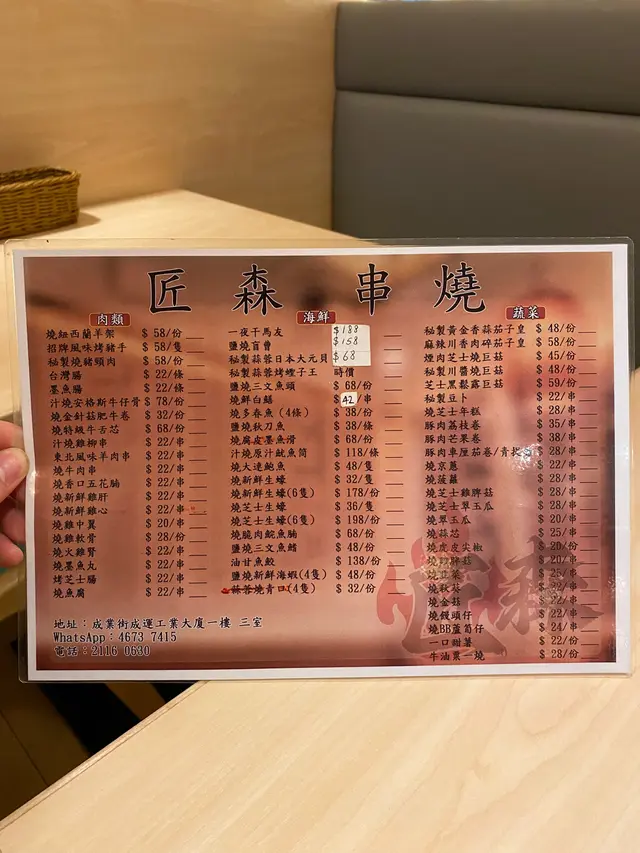 匠森串燒
肉類
燒紐西蘭羊架 $ 58/份
招牌風味烤豬手 $ 58/隻
秘製燒豬頸肉 $ 58/份
台灣腸 $ 22/條
墨魚腸 $ 22/條
汁燒安格斯牛仔骨 $ 78/份
燒金針菇肥牛卷 $ 32/份
燒特級牛舌芯 $ 68/份
汁燒雞柳串 $ 22/串
東北風味羊肉串 $ 22/串
燒牛肉串 $ 22/串
燒香口五花腩 $ 22/串
燒新鮮雞肝 $ 22/串
燒新鮮雞心 $ 22/串
燒雞中翼 $ 20/串
燒雞軟骨 $ 28/串
燒火雞腎 $ 22/串
燒墨魚丸 $ 22/串
烤芝士腸 $ 22/串
燒魚腐 $ 22/串
海鮮
一夜干馬友 $188
鹽燒盲曹 $158
秘製蒜蓉日本大元貝 $68
秘製蒜蓉烤蟶子王 時價
鹽燒三文魚頭 $ 68/份
燒鮮白鱔 $42/串
燒多春魚（4條） $ 38/份
鹽燒秋刀魚 $ 38/條
燒腐皮墨魚滑 $ 68/份
汁燒原汁魷魚筒 $ 118/條
燒大連鮑魚 $ 48/隻
燒新鮮生蠔 $ 32/隻
燒新鮮生蠔(6隻) $ 178/份
燒芝士生蠔 $ 36/隻
燒芝士生蠔(6隻) $ 198/份
燒脆肉鯇魚腩 $ 68/份
鹽燒三文魚鰭 $ 48/份
油甘魚鮫 $ 138/份
鹽燒新鮮海蝦(4隻) $ 48/份
蒜蓉燒青口(4隻) $ 32/份
蔬菜
秘製黃金香蒜茄子皇 $ 48/份
麻辣川香肉碎茄子皇 $ 58/份
煙肉芝士燒巨菇 $ 45/份
秘製川醬燒巨菇 $ 48/份
芝士黑鬆露巨菇 $ 59/份
秘製豆卜 $ 22/串
燒芝士年糕 $ 28/串
豚肉荔枝卷 $ 35/串
豚肉芒果卷 $ 38/串
豚肉車厘茄卷/青 $ 28/串
燒京蔥 $ 22/串
燒菠蘿 $ 22/串
燒芝士雞脾菇 $ 28/串
燒芝士翠玉瓜 $ 28/串
燒翠玉瓜 $ 20/串
燒蒜芯 $ 25/串
燒皮皮尖椒 $ 20/份
燒雞脾菇 $ 20/串
燒韭菜 $ 25/串
燒秋葵 $ 28/串
燒金菇 $ 22/串
燒饅頭仔 $ 22/串
燒BB蘆筍仔 $ 24/串
一口甜薯 $ 22/份
牛油粟一燒 $ 28/份
地址：成業街成運工業大廈一樓 三室
WhatsApp：4673 7415
電話：2116 0630
匠森